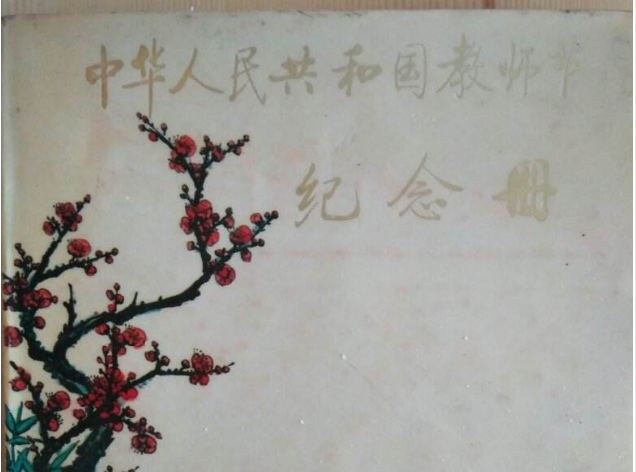 中华人民共和国教师节
纪念册